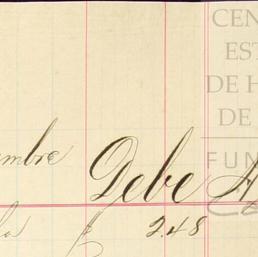 CEN
EST
DE H
DE
FUN
embre Debe H
2.48